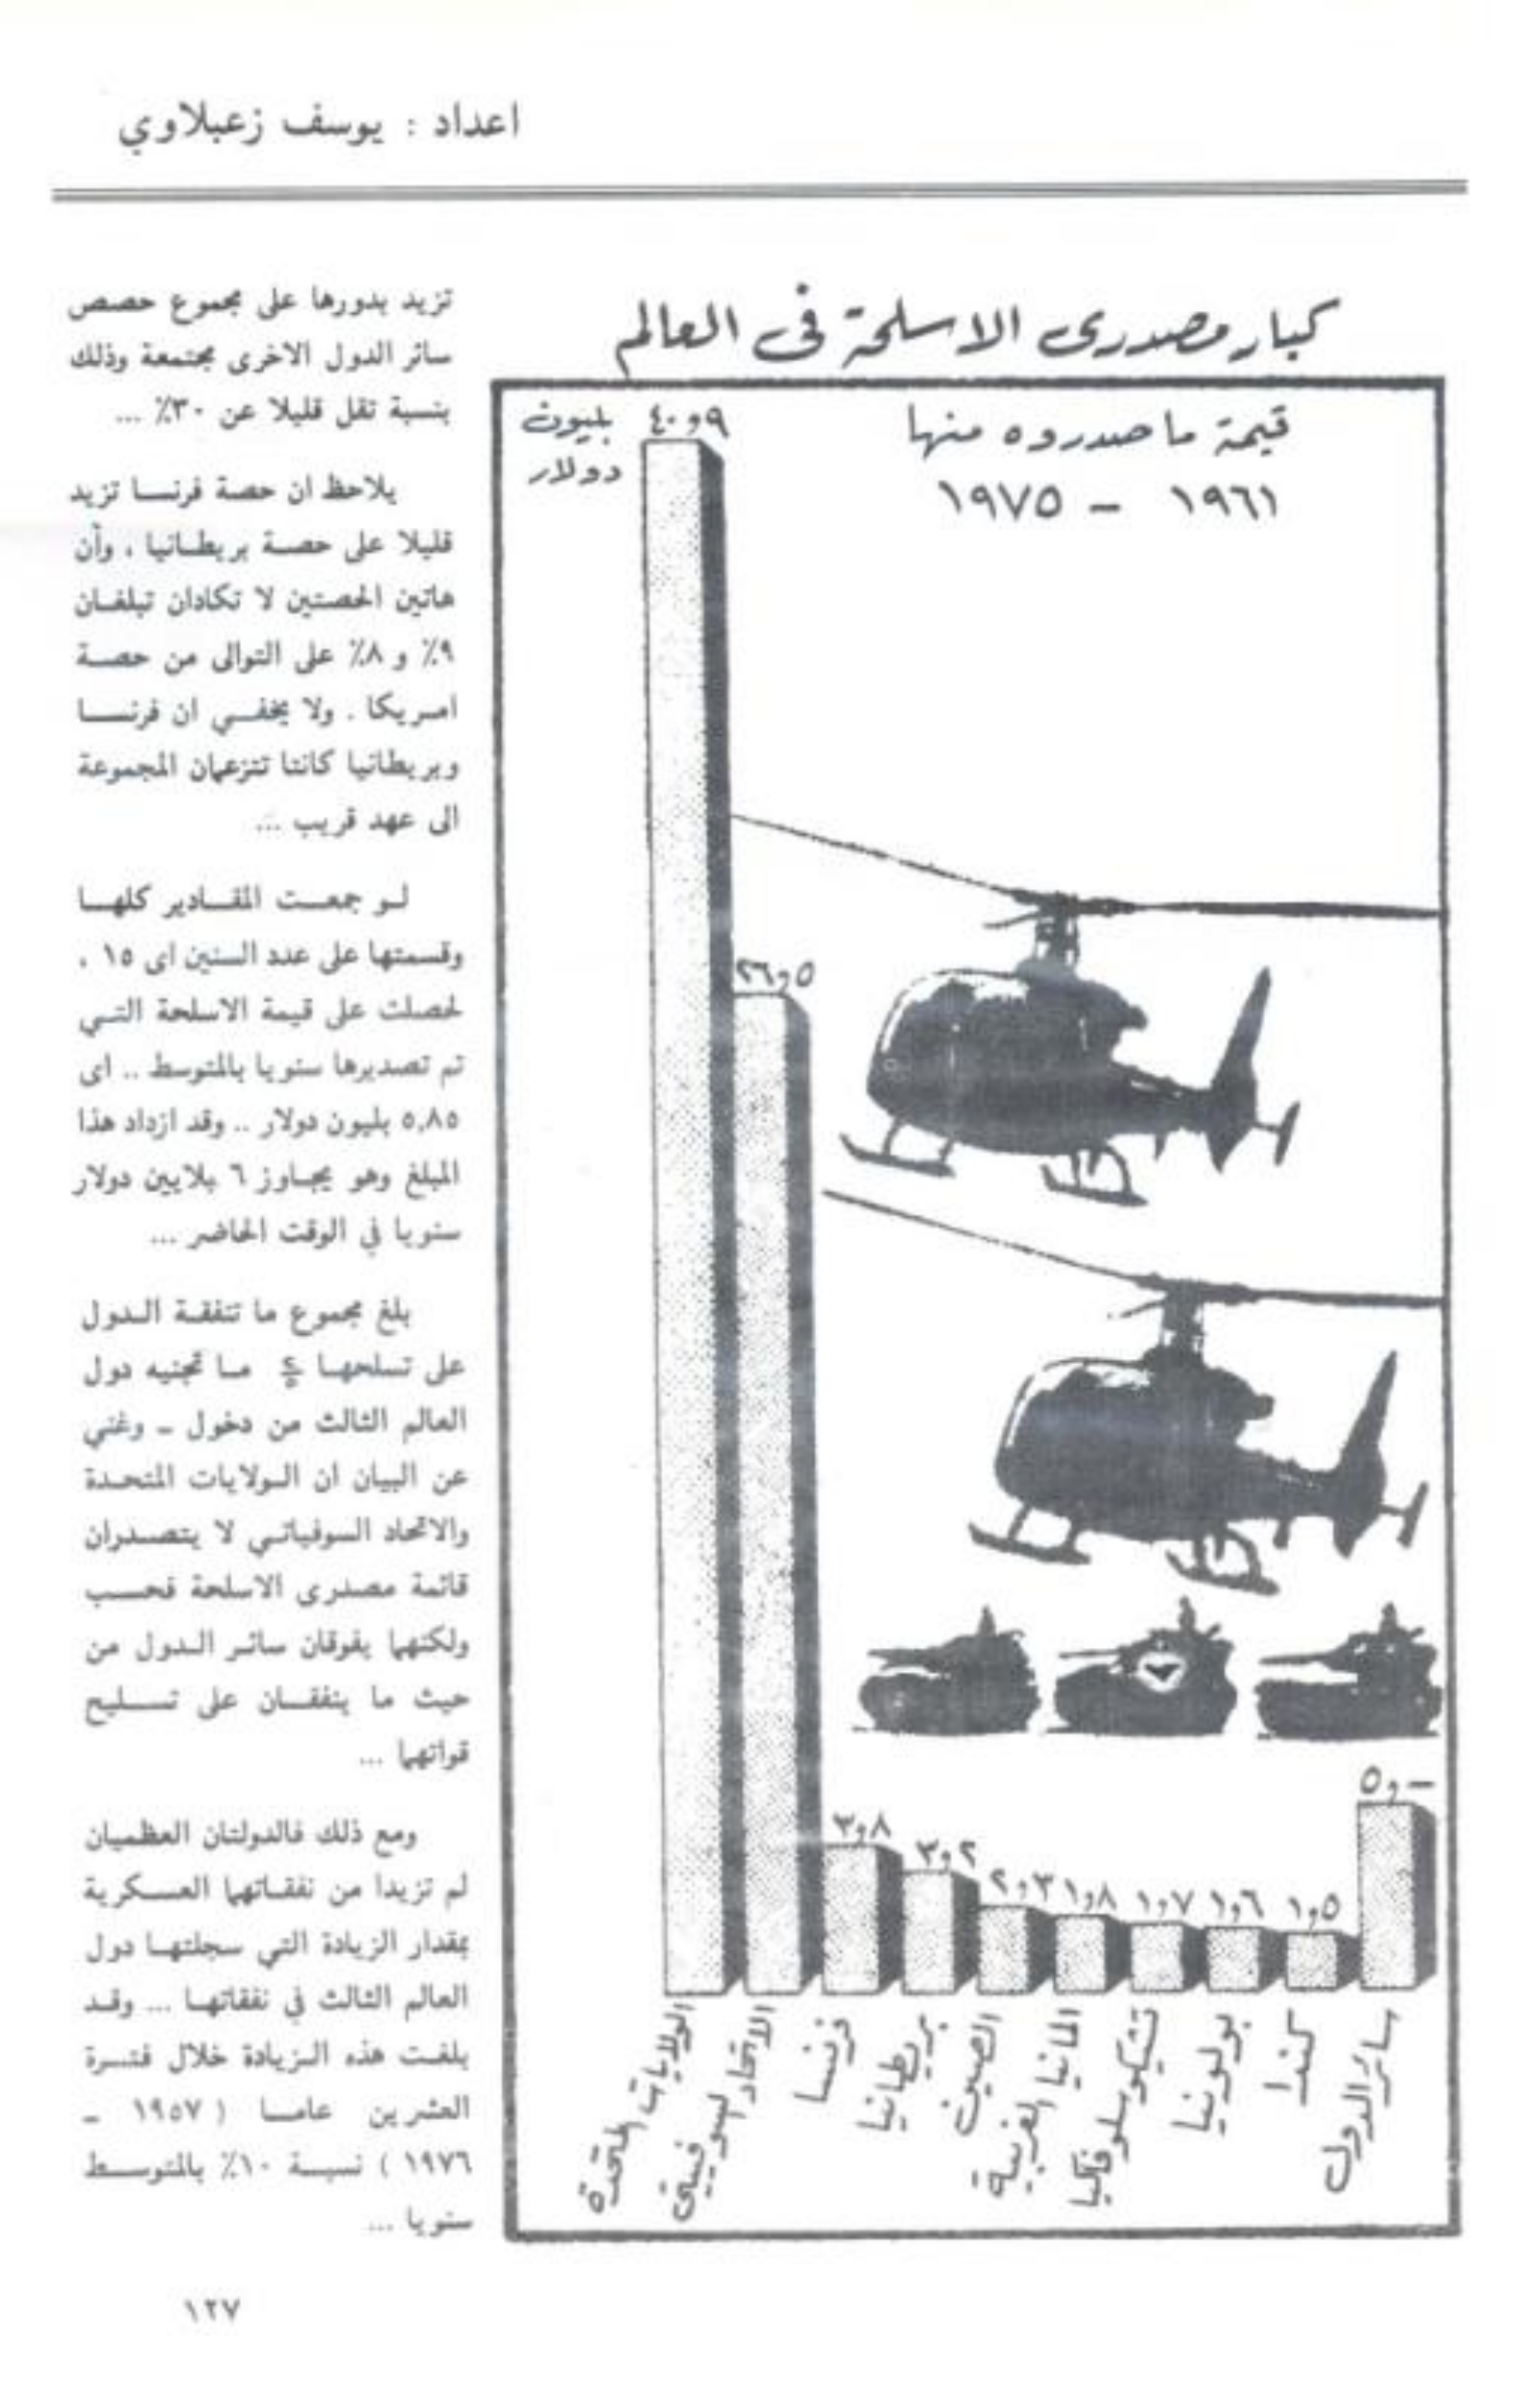 اعداد : يوسف زعبلاوي
كبار مصدرى الاسلحة فى العالم
قيمة ما صدروه منها
١٩٦١ – ١٩٧٥
بليون
دولار
٤٠,٩
٢٦,٥
٣,٨
٣,٢
٢,٣
١,٨
١,٧
١,٦
١,٥
٥,–
الولايات المتحدة
الاتحاد السوفييتى
فرنسا
بريطانيا
الصين
المانيا الغربية
تشيكوسلوفاكيا
بولونيا
كندا
سائر الدول
تزيد بدورها على مجموع حصص
سائر الدول الاخرى مجتمعة وذلك
بنسبة تقل قليلا عن ٣٠٪ ...
يلاحظ ان حصة فرنسا تزيد
قليلا على حصة بريطانيا ، وأن
هاتين الحصتين لا تكادان تبلغان
٩٪ و ٨٪ على التوالى من حصة
امريكا . ولا يخفي ان فرنسا
وبريطانيا كانتا تتزعمان المجموعة
الى عهد قريب ...
لو جمعت المقادير كلها
وقسمتها على عدد السنين اى ١٥ ،
لحصلت على قيمة الاسلحة التي
تم تصديرها سنويا بالمتوسط .. اى
٥,٨٥ بليون دولار .. وقد ازداد هذا
المبلغ وهو يجاوز ٦ بلايين دولار
سنويا في الوقت الحاضر ...
بلغ مجموع ما تنفقة الدول
على تسلحها ما تجنيه دول
العالم الثالث من دخول – وغني
عن البيان ان الولايات المتحدة
والاتحاد السوفياتي لا يتصدران
قائمة مصدرى الاسلحة فحسب
ولكنهما يفوقان سائر الدول من
حيث ما ينفقان على تسليح
قواتهما ...
ومع ذلك فالدولتان العظميان
لم تزيدا من نفقاتهما العسكرية
بمقدار الزيادة التي سجلتها دول
العالم الثالث في نفقاتها ... وقد
بلغت هذه الزيادة خلال فترة
العشرين عاما ( ١٩٥٧ –
١٩٧٦ ) نسبة ١٠٪ بالمتوسط
سنويا ...
١٢٧